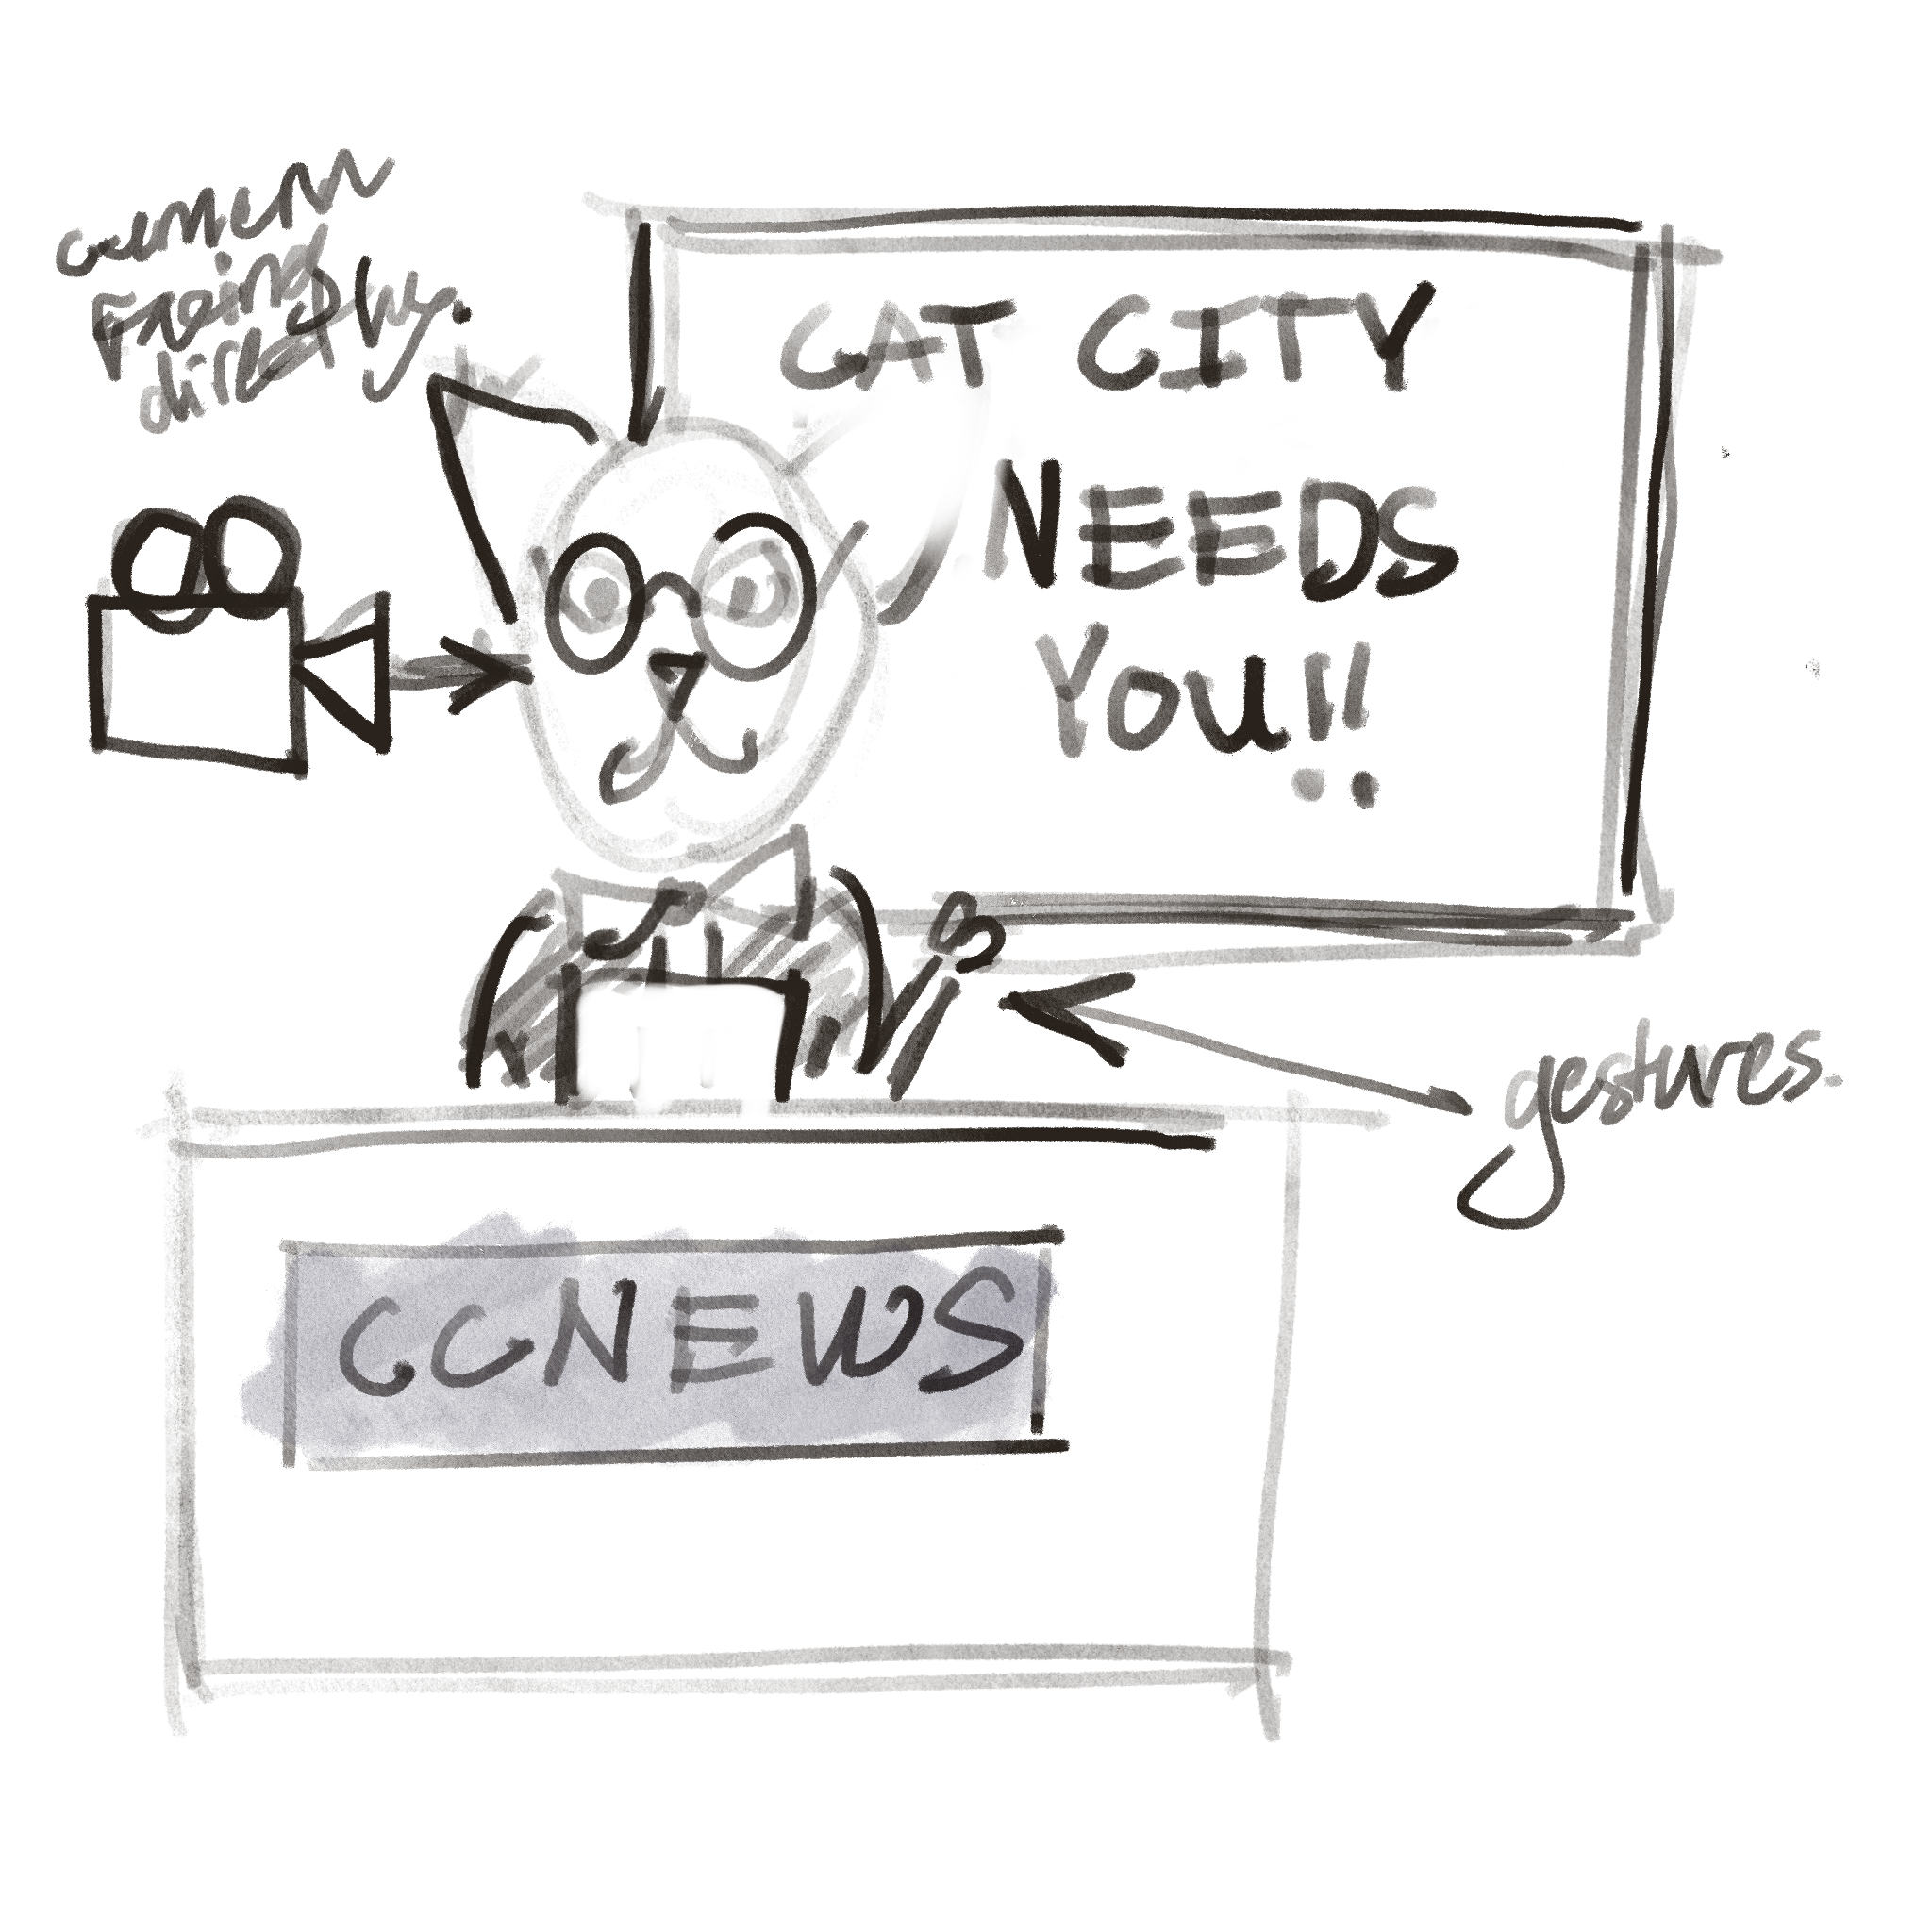 camera
facing
directly.
CAT CITY
NEEDS
YOU!!
gestures.
CCNEWS